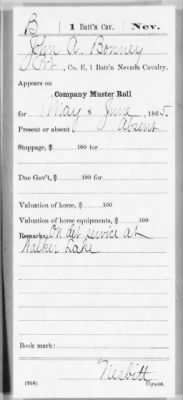 B | 1 Batt'n Cav. | Nev.
John A. Bonney
Pvt, Co. E, 1 Batt'n Nevada Cavalry.
Appears on
Company Muster Roll
for May & June, 1865.
Present or absent Absent
Stoppage, $ 100 for
Due Gov't, $ 100 for
Valuation of horse, $ 100
Valuation of horse equipments, $ 100
Remarks: On det service at
Walker Lake
Book mark:
Nesbitt
(858) Copyist.